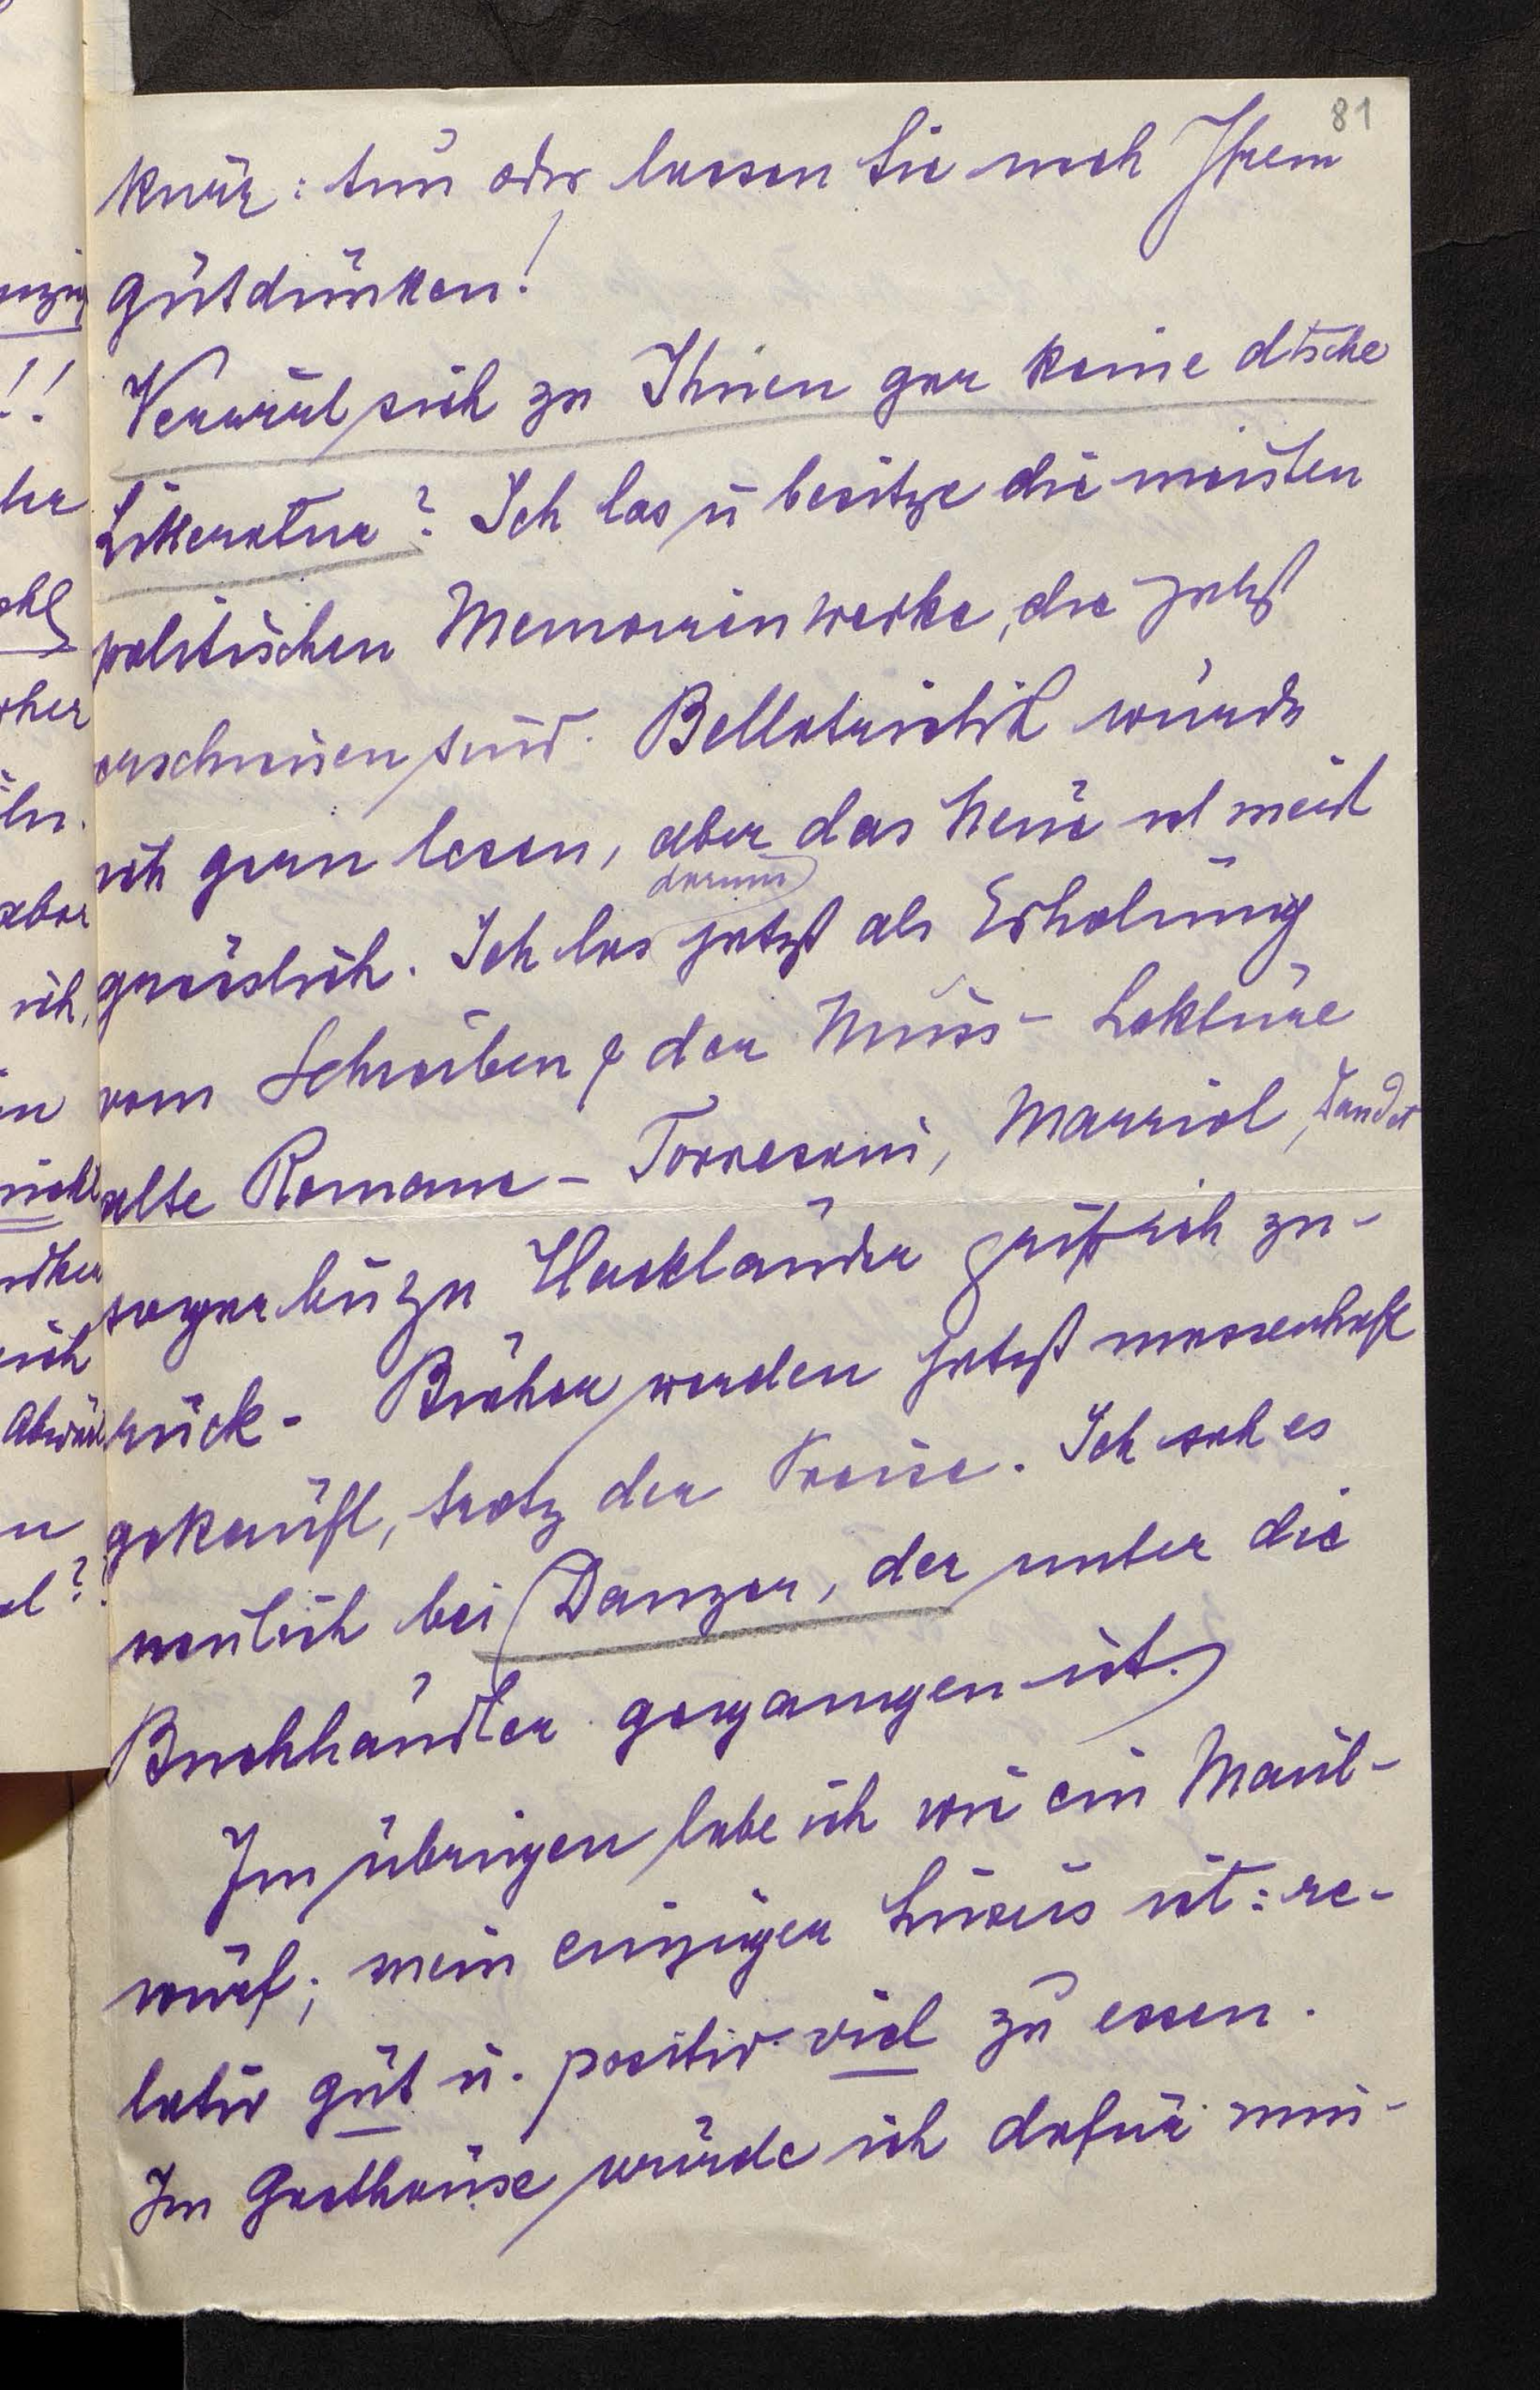 81
kurz: tun oder lassen Sie nach Ihrem
Gutdünken!
Verirrt sich zu Ihnen gar keine dtsche
Litteratur? Ich las u besitze die meisten
politischen Memoirenwerke, die jetzt
erschienen sind. Belletristik würde
ich gern lesen, aber das Neue ist meist
grässlich. Ich las darum jetzt als Erholung
vom Schreiben & der Muss-Lektüre
alte Romane - Torresani, Marriot, Daudet
sogar bis zu Hackländer griff ich zu-
rück - Bücher werden jetzt massenhaft
gekauft, trotz der Preise. Ich sah es
neulich bei (Danzer, der unter die
Buchhändler gegangen ist.)
Im übrigen lebe ich wie ein Maul-
wurf; mein einziger Luxus ist: re-
lativ gut u. positiv viel zu essen.
Im Gasthause würde ich dafür min-